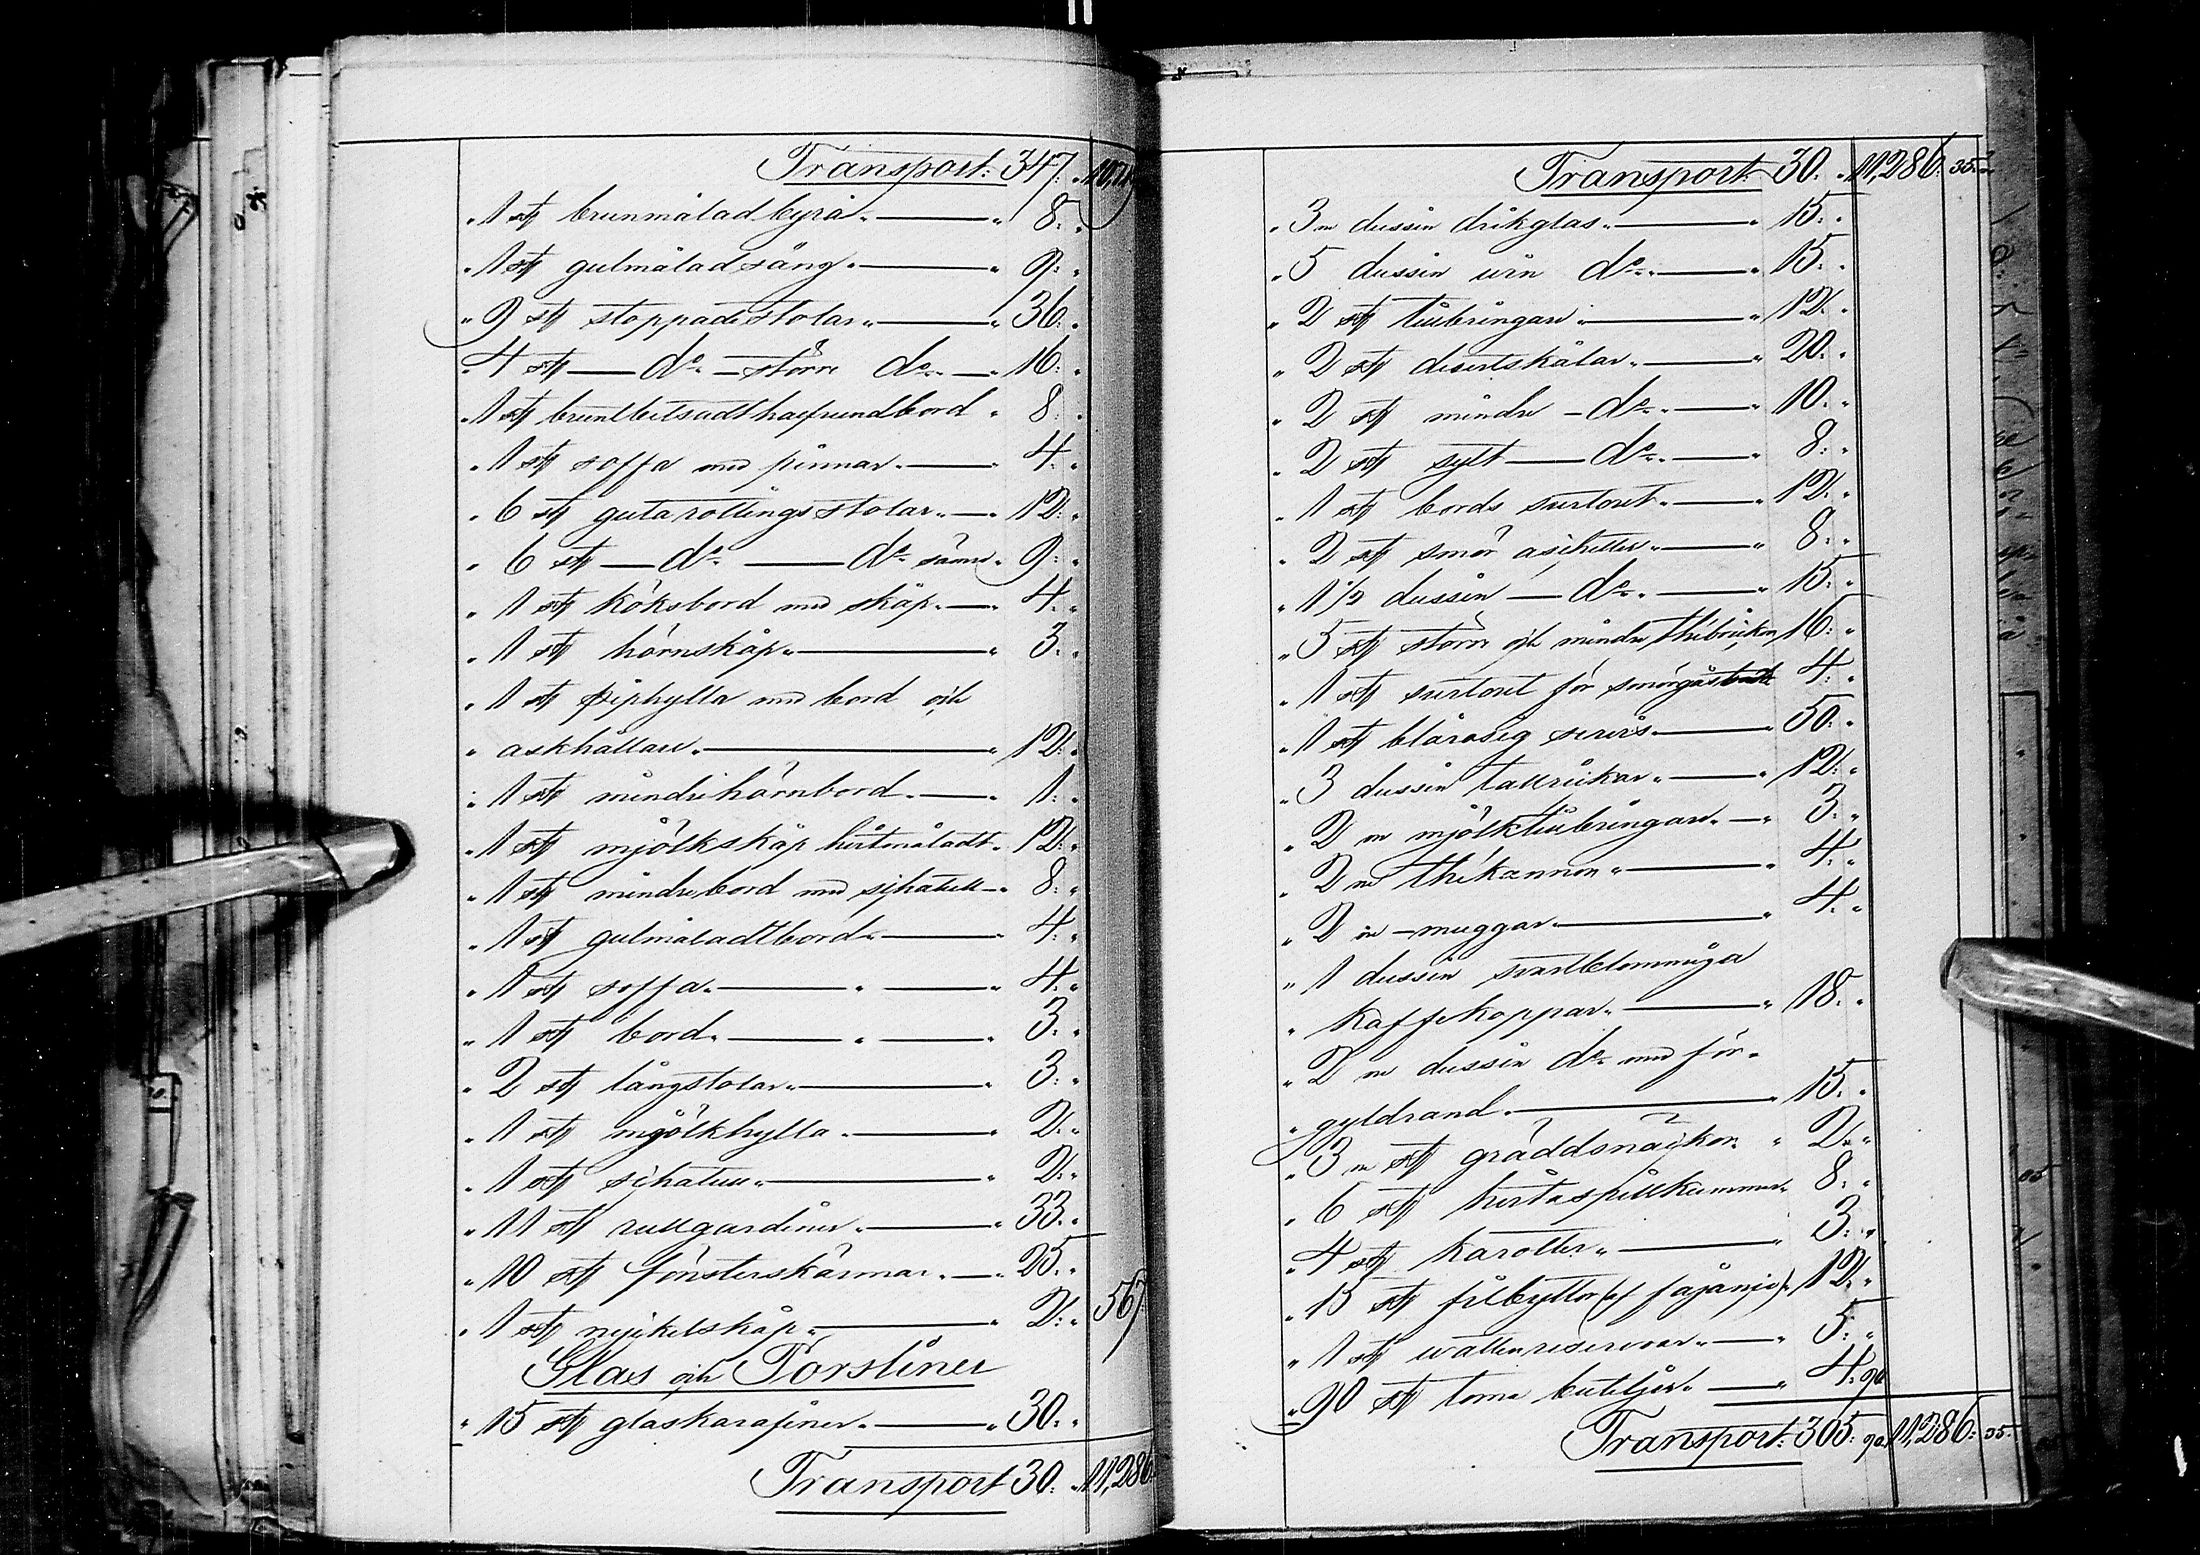 Transport: 347: " 10,71
" 1 st brunmålad byrå " — " 8: "
" 1 st gulmålad säng " — " 9: "
" 9 st stoppade stolar " — " 36: "
" 4 st — do — större do " — " 16: "
" 1 st brunbetsadt halfrundbord " 8: "
" 1 st soffa med pinnar " — " 4: "
" 6 st gula rottings stolar " — " 12: "
" 6 st — do — do sämre " 9: "
" 1 st köksbord med skåp " — " 4: "
" 1 st hörnskåp " — " 3: "
" 1 st piphylla med bord och
" askhållare " — " 12: "
" 1 st mindre hörnbord " — " 1: "
" 1 st mjölkskåp hvitmåladt " 12: "
" 1 st mindre bord med schatull — " 8: "
" 1 st gulmåladt bord " — " 4: "
" 1 st soffa " — " — " 4: "
" 1 st bord " — " — " 3: "
" 2 st långstolar " — " 3: "
" 1 st mjölkhylla " — " 2: "
" 1 st schatull " — " 2: "
" 11 st rullgardiner " — " 33: "
" 10 st fönsterskärmar " — " 25: "
" 1 st nyckelskåp " — " 2: " 567
Glas och Porsliner
" 15 st glaskarafiner " — " 30: "
Transport 30: " 11,286
Transport: 30: " 11,286: 35
" 3 ne dussin drikglas " — " 15: "
" 5 dussin vin do " — " 15: "
" 2 st tillbringare " — " 12: "
" 2 st desertskålar " — " 20: "
" 2 st mindre — do " — " 10: "
" 2 st sylt — do " — " 8: "
" 1 st bords surtoret " — " 12: "
" 2 st smör aschetter " — " 8: "
" 1 1/2 dussin — do " — " 15: "
" 5 st större och mindre thebrickor 16: "
" 1 st surtoret för smörgåsbord 4: "
" 1 st blårosig servis " — " 50: "
" 3 dussin tallrickar " — " 12: "
" 2 ne mjölktillbringare " — " 3: "
" 2 ne thekannor " — " 4: "
" 2 ne — muggar " — " 4: "
" 1 dussin svartblommiga
" kaffekoppar " — " 18: "
" 2 ne dussin do med för-
" gyld rand " — " 15: "
" 3 ne st gräddsnäckor " " 2: "
" 6 st hvita spillkummer " 8: "
" 4 st karotter " — " 3: "
" 15 st filbyttor (af fajance) " 12: "
" 1 st vattenreservoar " — " 5: "
" 90 st toma buteljer " — " 4: 90
Transport: 305: 90 11,286: 35